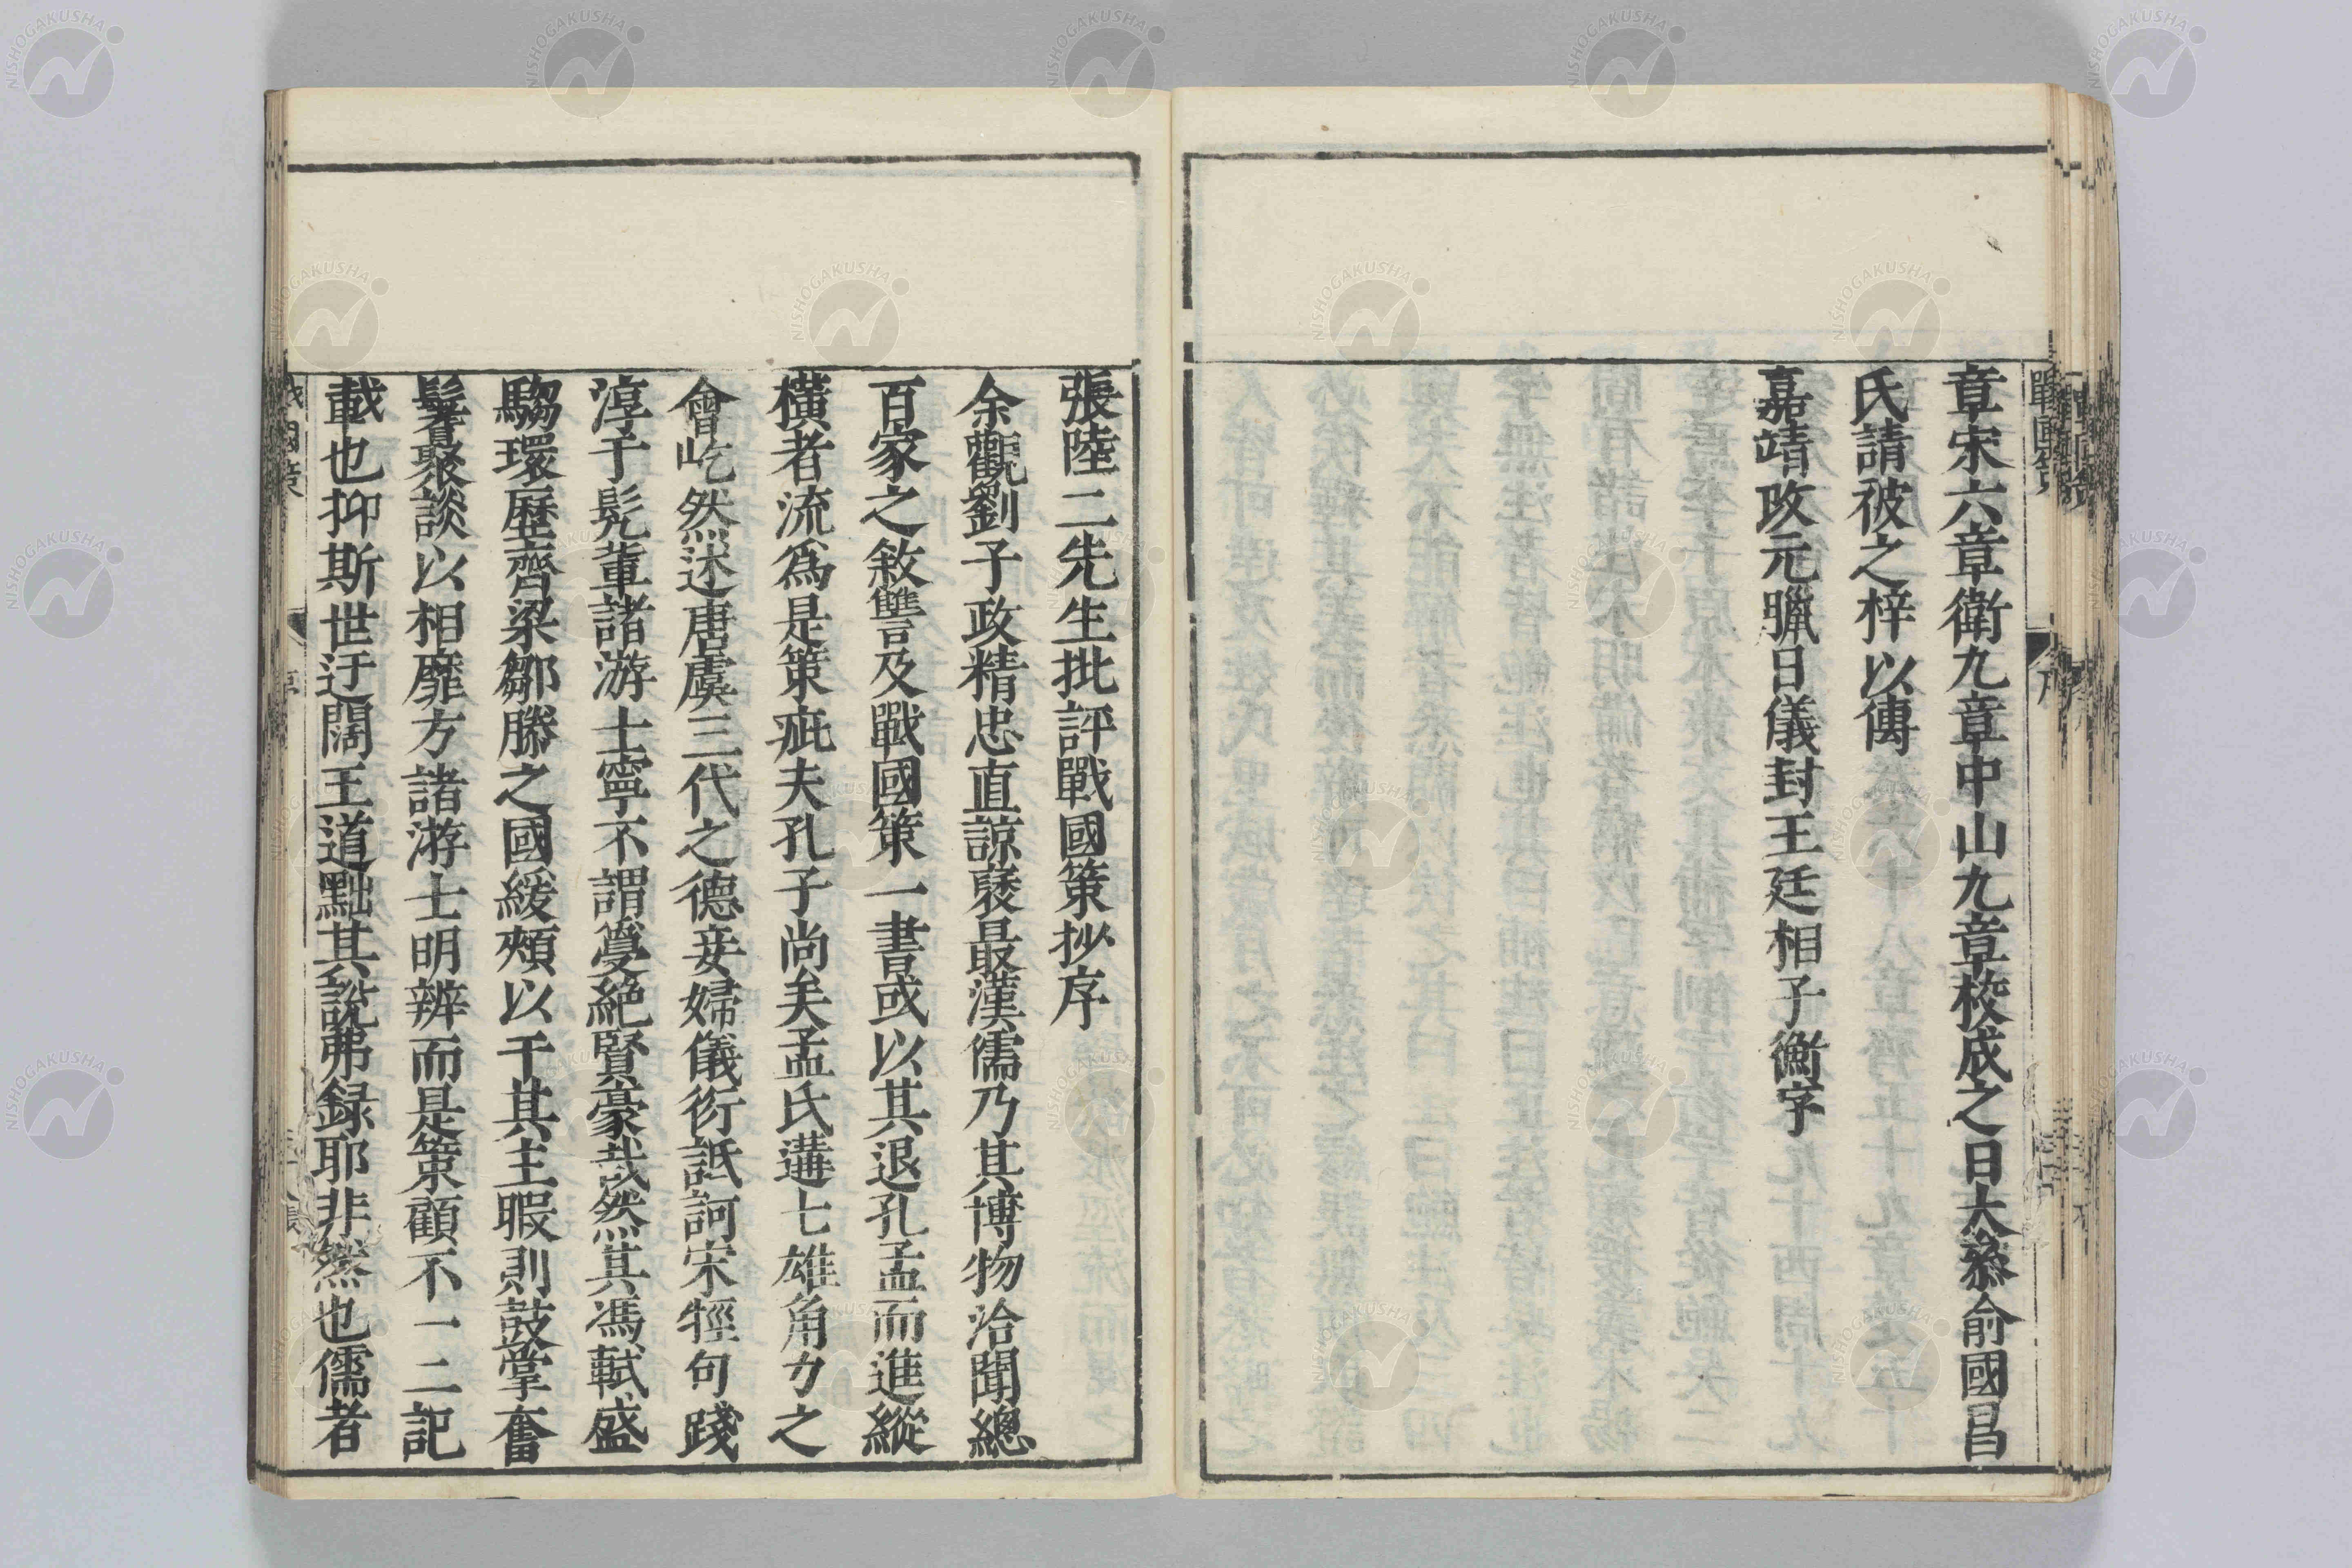 章宋六章衛九章中山九章校成之日大叅俞國昌
氏請彼之梓以傳
嘉靖改元臘日儀封王廷相子衡字
張陸二先生批評戰國策抄序
余觀劉子政精忠直諒裦最漢儒乃其博物洽聞總
百家之敘讐及戰國策一書或以其退孔孟而進縱
橫者流爲是策疵夫孔子尚矣孟氏遘七雄角力之
會屹然述唐虞三代之德妾婦儀衍詆訶宋牼句踐
淳于髡輩諸游士寧不謂敻絕賢豪哉然其馮軾盛
騶環歷齊梁鄒滕之國緩頰以干其主暇則鼓掌奮
鬐聚談以相靡方諸游士明辨而是策顧不一二記
載也抑斯世迂闊王道黜其說弗録耶非然也儒者